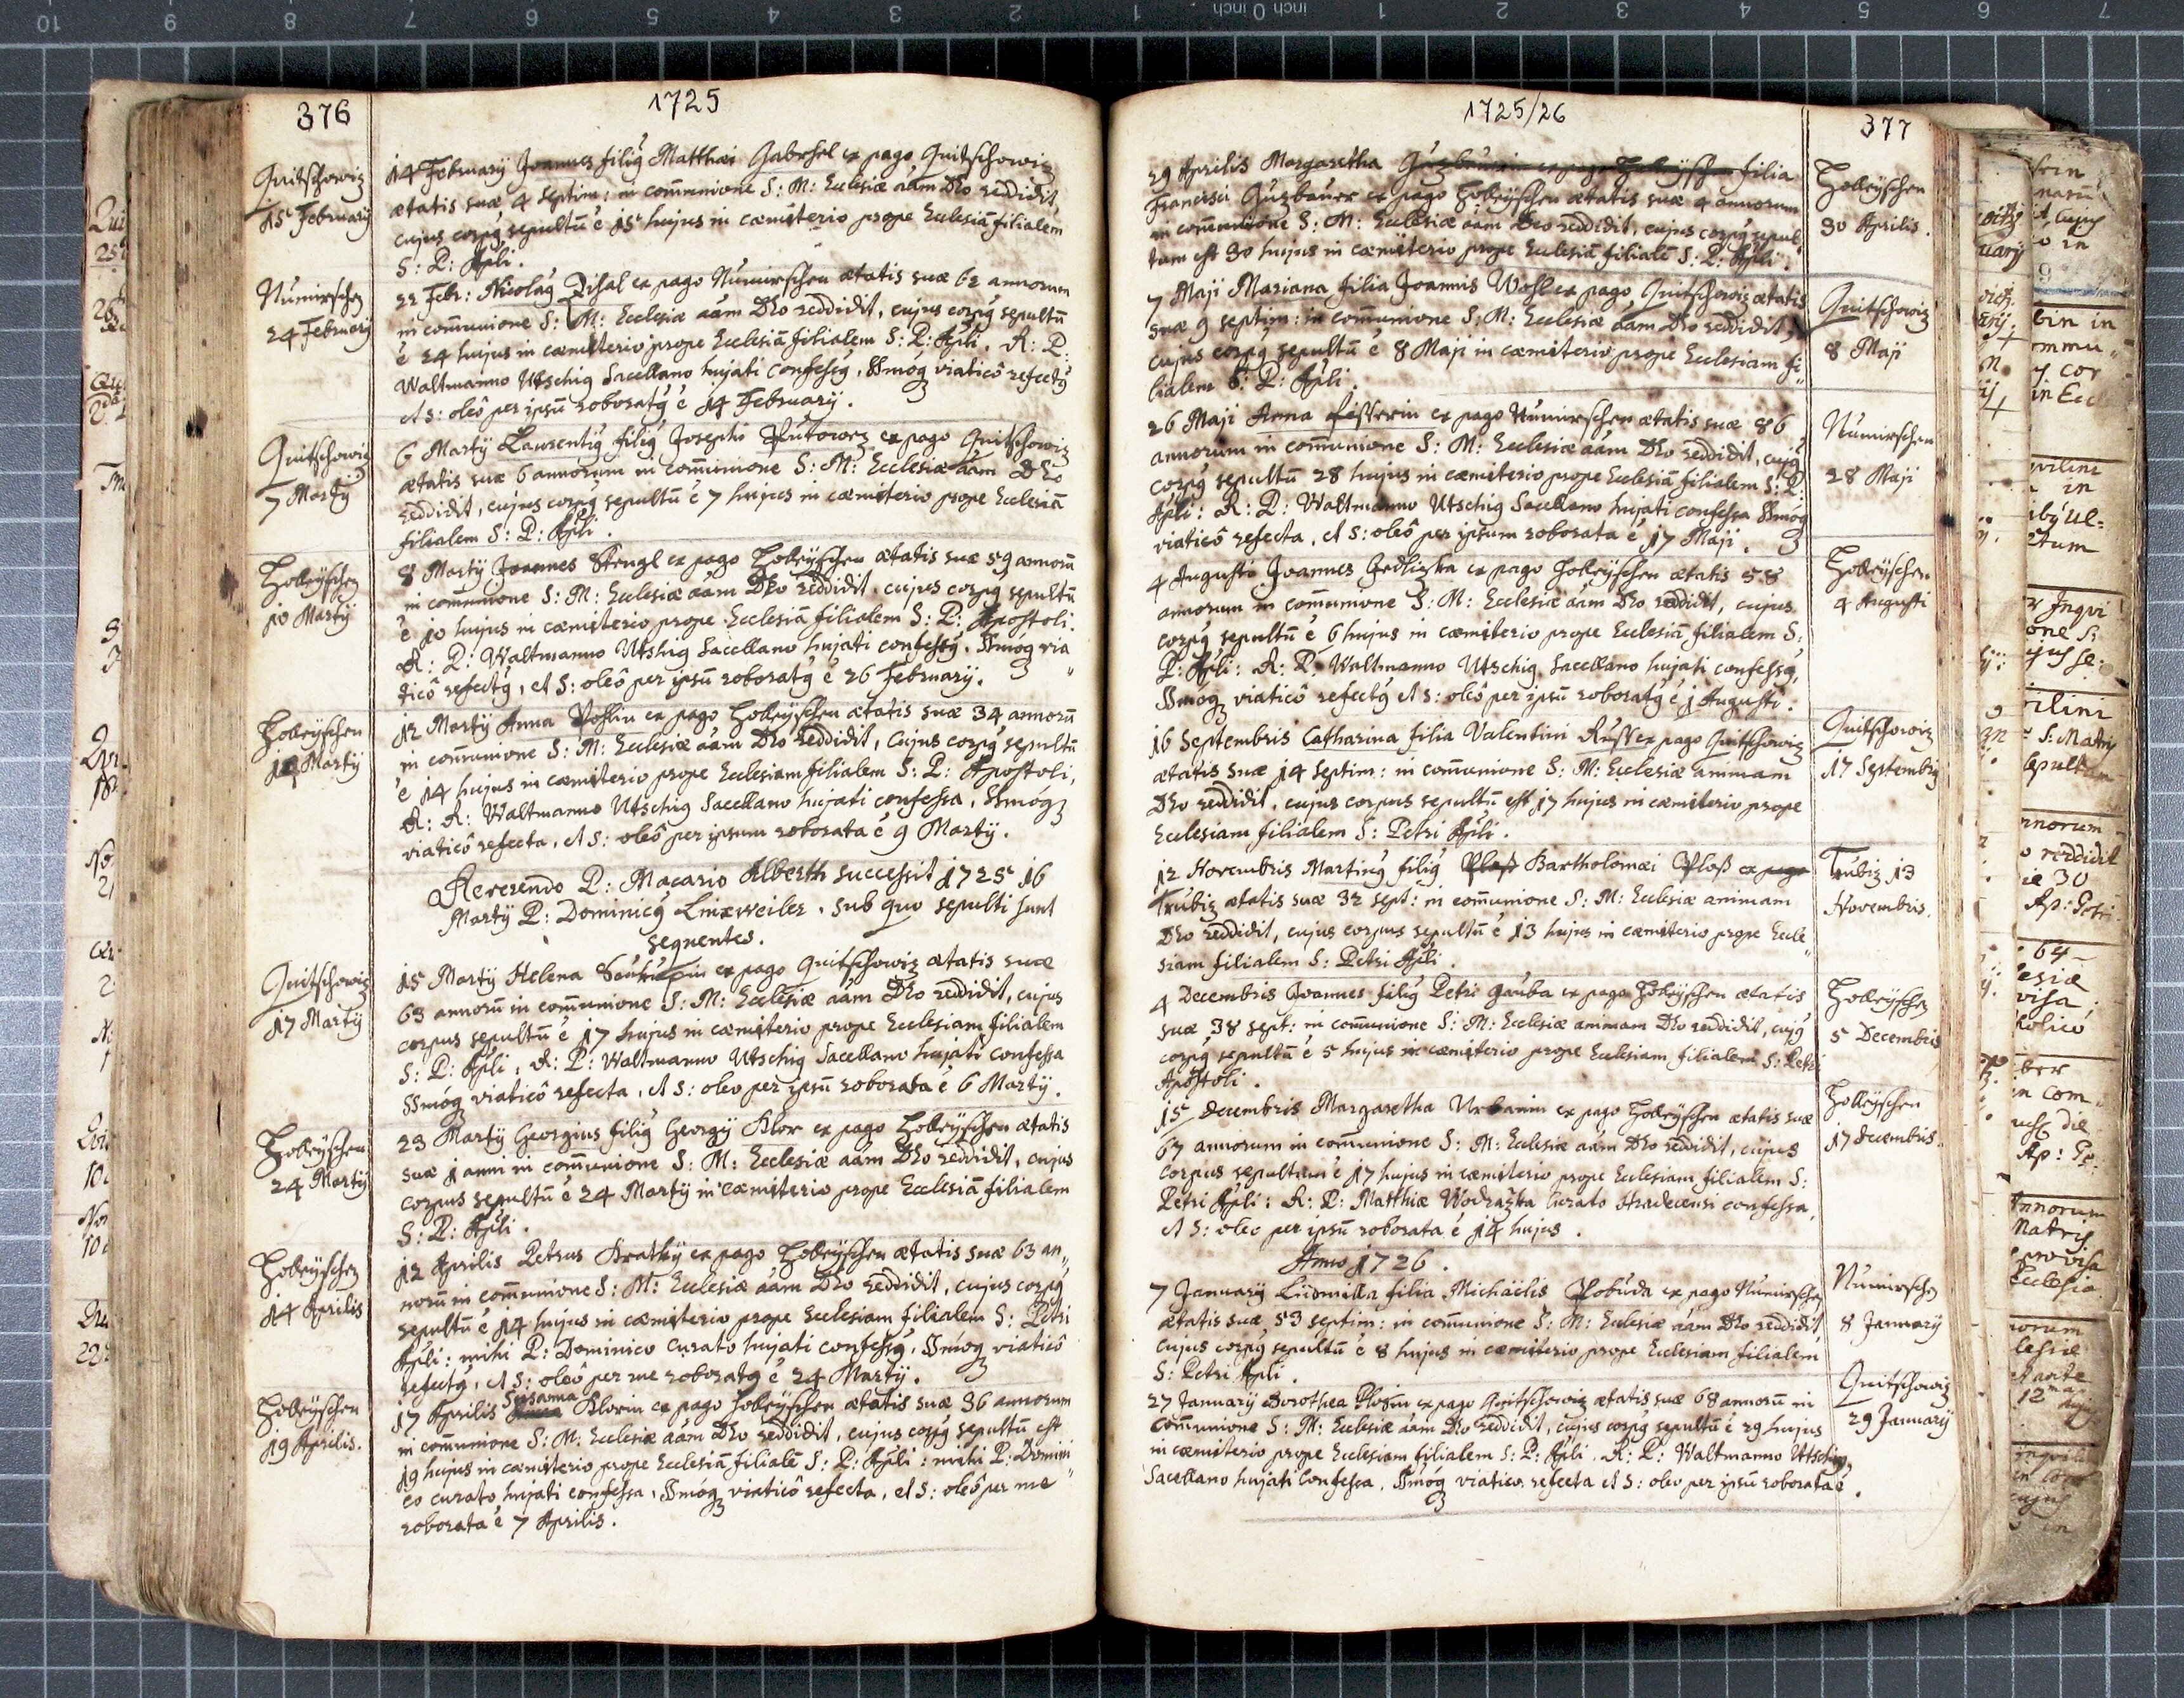 376
1725
Quitschowiz
15 February
14 February Joannes filig Matthæi Gabrhel ex pago Quitschowiz
ætatis suæ 4 septim: in communione S: M: Ecclesiæ aam Dho reddidit,
cujus corpg sepultu e 15 hujus in cæmiterio prope Ecclesiã filialem
S: P: Apli.
Numirschen
24 February
22 Febr: Nicolag ex pago Numirschen ætatis suæ 62 annorum
in communione S: M: Ecclesiæ aam Dho reddidit, cujus corpg sepultũ
e 24 hujus in cæmiterio prope Ecclesiã filialem S: P: Apli. R: P:
Waltmanno Utschig Sacellano hujati confessg, SSmog viaticô refectg
et S: oleô per ipsũ roboratg e 14 February.
Quitschowiz
7 Marty
6 Marty Laurentig filig Josephi ex pago Quitschowiz
ætatis suæ 6 annorum in communione S: M: Ecclesiæ aam Dho
reddidit, cujus corpg sepultũ e 7 hujus in cæmiterio prope Ecclesiã
filialem S: P: Apli.
Holleyschen
10 Marty
8 Marty Joannes Stengl ex pago Holleyschen ætatis suæ 59 annorũ
in communione S: M: Ecclesiæ aam Dho reddidit, cujus corpg sepultũ
e 10 hujus in cæmiterio prope Ecclesiã filialem S: P: Apostoli.
R: P: Waltmanno Utshig Sacellano hujati confessg. SSmog via
ticô refectg, et S: oleô per ipsũ roboratg e 26 February.
Holleyschen
14 Marty
12 Marty Anna ex pago Holleyschen ætatis suæ 34 annorũ
in communione S: M: Ecclesiæ aam Dho reddidit, cujus corpg sepultũ
e 14 hujus in cæmiterio prope Ecclesiam filialem S: P: Apostoli,
R: R: Waltmanno Utschig Sacellano hujati confessa, SSmog
viaticô refecta, et S: oleô per ipsum roborata e 9 Marty.
Reverendo P: Macario Alberth successit 1725 16
Marty P: Dominicg Linxweiler. sub quo sepulti sunt
sequentes.
Quitschowiz
17 Marty
15 Marty Helena ex pago Quitschowiz ætatis suæ
63 annorũ in communione S: M: Ecclesiæ aam Dho reddidit, cujus
corpus sepultũ e 17 hujus in cæmiterio prope Ecclesiam filialem
S: P: Apli, R: P: Waltmanno Utschig Sacellano hujati confessa
SSmog viaticô refecta, et S: oleo per ipsũ roborata e 6 Marty.
Holleyschen
24 Marty
23 Marty Georgius filig Georgy Klor ex pago Holleyschen ætatis
suæ 1 anni in communione S: M: Ecclesiæ aam Dho reddidit, cujus
corpus sepultũ e 24 Marty in cæmiterio prope Ecclesiã filialem
S: P: Apli.
Holleyschen
14 Aprilis
12 Aprilis Petrus Kratky ex pago Holleyschen ætatis suæ 63 an„
norũ in communione S: M: Ecclesiæ aam Dho reddidit, cujus corpg
sepultũ e 14 hujus in cæmiterio prope Ecclesiam filialem S: Petri
Apli: mihi P: Dominico Curato hujati confessg, SSmog viaticô
refectg, et S: oleô per me roboratg e 24 Marty.
Holleyschen
19 Aprilis.
17 Aprilis Susanna Klorin ex pago Holleyschen ætatis suæ 36 annorum
in communione S: M: Ecclesiæ aam Dho reddidit, cujus corpg sepultũ est
19 hujus in cæmiterio prope Ecclesiã filialẽ S: P: Apli: mihi P: Domini
co curato hujati confessa, SSmog viaticô refecta, et S: oleô per me
roborata e 7 Aprilis.
1725/26
377
29 Aprilis Margaretha filia
Francisci Guzbauer ex pago Holleyschen ætatis suæ 4 annorum
in communione S: M: Ecclesiæ aam Deo reddidit, cujus corpg sepul
tum est 30 hujus in cæmiterio prope Ecclesiã filialẽ S: P: Apli.
Holleyschen
30 Aprilis.
7 Maji Mariana filia Joannis Wohl ex pago Quitschowiz ætatis
suæ 9 septim: in communione S: M: Ecclesiæ aam Dho reddidit,
cujus corpg sepultũ e 8 Maji in cæmiterio prope Ecclesiam fi
lialem S: P: Apli.
Quitschowiz
8 Maji
26 Maji Anna ex pago Numirschen ætatis suæ 86
annorum in communione S: M: Ecclesiæ aam Dho reddidit, cujg
corpg sepultũ 28 hujus in cæmiterio prope Ecclesiã filialem S: P:
Apli: R: P: Waltmanno Utschig Sacellano hujati confessa SSmog
viaticô refecta, et S: oleô per ipsum roborata e 17 Maji.
Numirschen
28 Maji
4 Augusti Joannes Hrdliczka ex pago Holleyschen ætatis 58
annorum in communione S: M: Ecclesiæ aam Dho reddidit, cujus
corpg sepultũ e 6 hujus in cæmiterio prope Ecclesiã filialem S:
P: Apli: R: P: Waltmanno Utschig Sacellano hujati confessg,
SSmog viaticô refectg et S: oleô per ipsũ roboratg e 1 Augusti.
Holleyschen
4 Augusti
16 Septembris Catharina filia Valentini Russ ex pago Quitschowiz
ætatis suæ 14 septim: in communione S: M: Ecclesiæ animam
Dho reddidit, cujus corpus sepultũ est 17 hujus in cæmiterio prope
Ecclesiam filialem S: Petri Apli.
Quitschowiz
17 Septembris
12 Novembris Marting filig Ploß Bartholomæi Ploß ex pago
Trubiz ætatis suæ 32 sept: in communione S: M: Ecclesiæ animam
Dho reddidit, cujus corpus sepultũ e 13 hujus in cæmiterio prope Eccle
siam filialem S: Petri Apli.
Trubiz 13
Novembris.
4 Decembris Joannes filig Petri Gauba ex pago Holleyschen ætatis
suæ 38 sept: in communione S: M: Ecclesiæ animam Dho reddidit, cujg
corpg sepultũ e 5 hujus in cæmiterio prope Ecclesiam filialem S: Petri
Apostoli.
Holleyschen
5 Decembris
15 Decembris Margaretha Urbanin ex pago Holleyschen ætatis suæ
67 annorum in communione S: M: Ecclesiæ aam Dho reddidit, cujus
corpus sepultum e 17 hujus in cæmiterio prope Ecclesiam filialem S:
Petri Apli: R: P: Matthiæ Wodrazka Curato Hradecensi confessa,
et S: oleo per ipsũ roborata e 14 hujus.
Holleyschen
17 Decembris.
Anno 1726.
7 January Ludmilla filia Michaëlis Pobuda ex pago Numirschen
ætatis suæ 53 septim: in communione S: M: Ecclesiæ aam Dho reddidit
cujus corpg sepultũ e 8 hujus in cæmiterio prope Ecclesiam filialem
S: Petri Apli.
Numirschen
8 January
27 January Dorothea ex pago Quitschowiz ætatis suæ 68 annorũ in
communione S: M: Ecclesiæ aam Dho reddidit, cujus corpg sepultũ e 29 hujus
in cæmiterio prope Ecclesiam filialem S: P: Apli. R: P: Waltmanno Uttschig,
Sacellano hujati Confessa, SSmog viatico refecta et S: oleo per ipsũ roborata e.
Quitschowiz
29 January